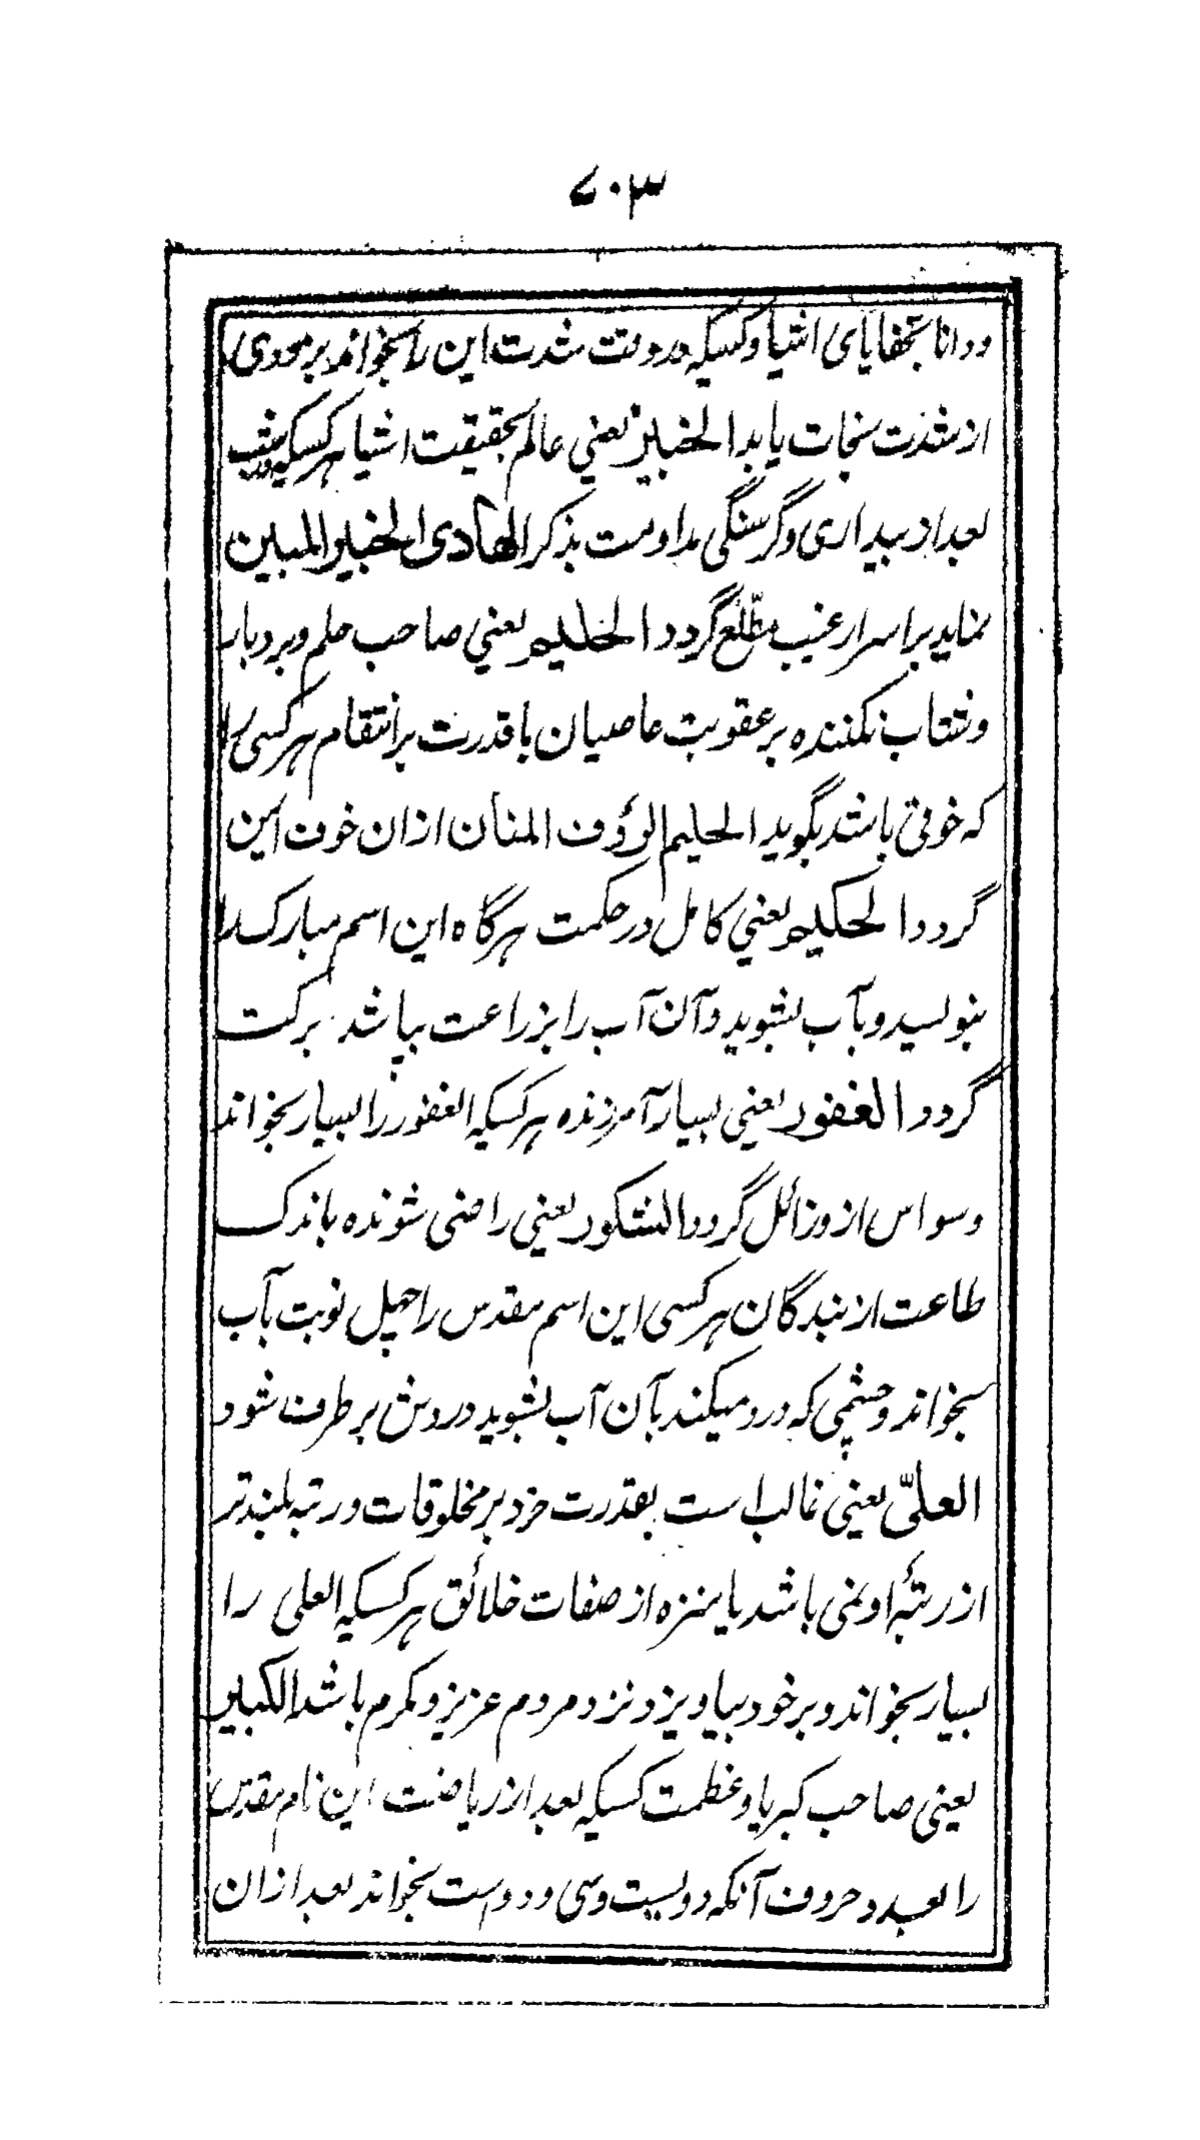 ۷۰۳
ودانا بخفایای اشیا وکسیکه در وقت شدت این را بخواند بر محدی
از شدت نجات یابد الخبیر یعنی عالم بحقیقت اشیا هر کسیکه شب
بعد از بیداری وگرسنگی مداومت بذکر الهادی الخبیر المبین
نماید بر اسرار غیب مطّلع گردد الحلیم یعنی صاحب حلم وبردبار
وشتاب نکننده بر عقوبت عاصیان با قدرت بر انتقام هر کسی را
که خوفی باشد بگوید الحلیم الرؤف المنان ازان خوف ایمن
گردد الحکیم یعنی کامل در حکمت هرگاه این اسم مبارک را
بنویسد وبآب بشوید وآن آب را بزراعت بپاشد برکت
گردد الغفور یعنی بسیار آمرزنده هر کسیکه الغفور را بسیار بخواند
وسواس از وزائل گردد الشکور یعنی راضی شونده باندک
طاعت از بندگان هر کسی این اسم مقدس را چهل نوبت بآب
بخواند وچشمی که درد میکند بآن آب بشوید دردش بر طرف شود
العلیّ یعنی غالب است بقدرت خود بر مخلوقات ورتبه بلندتر
از رتبهٔ او نمی باشد یا منزه از صفات خلائق هر کسیکه العلی را
بسیار بخواند وبر خود بیاویزد نزد مردم عزیز ومکرم باشد الکبیر
یعنی صاحب کبریا وعظمت کسیکه بعد از ریاضت این نام مقدس
را بعدد حروف آنکه دویست وسی ودوست بخواند بعد ازان